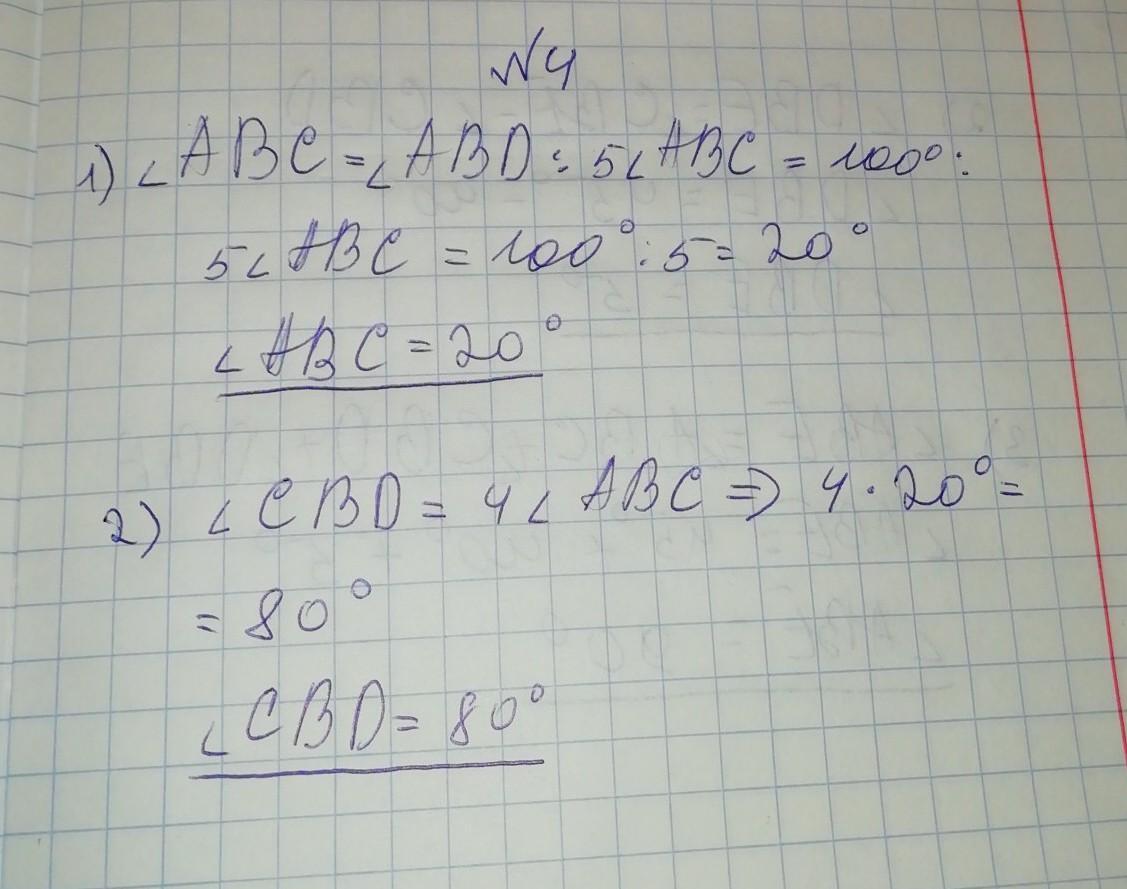 №4
1) ∠ABC = ∠ABD : 5∠ABC = 100° :
5∠ABC = 100° : 5 = 20°
∠ABC = 20°
2) ∠CBD = 4∠ABC ⇒ 4 · 20° =
= 80°
∠CBD = 80°